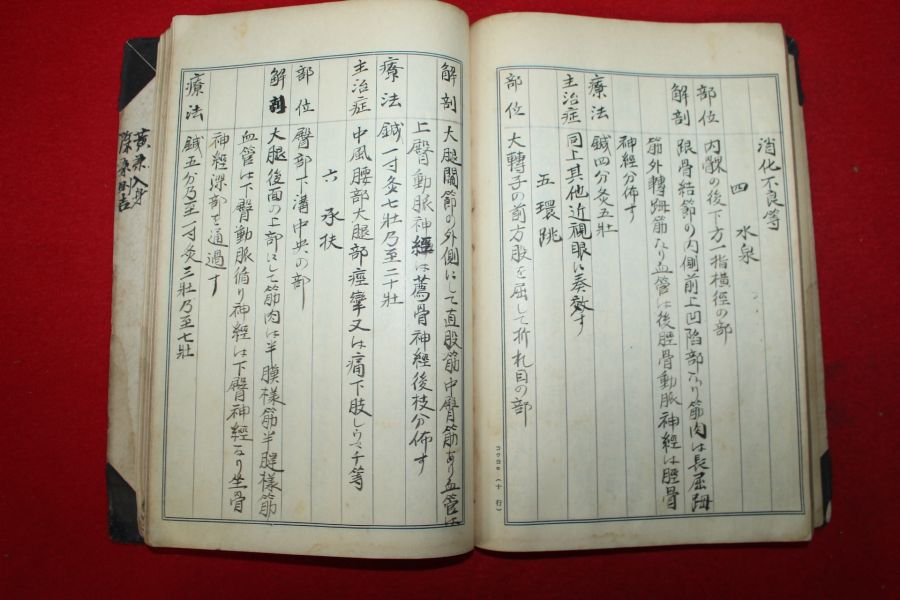 消化不良等
四 水泉
部位 内髁の後下方一指横徑の部
解剖 跟骨結節の内側前上凹陷部なり筋肉は長屈踇
筋外轉踇筋なり血管は後脛骨動脈神經は脛骨
神經分佈す
療法 鍼四分灸五壯
主治症 同上其他近視眼に奏效す
五 環跳
部位 大轉子の前方股を屈して折れ目の部
コクヨセ(十行)
解剖 大腿關節の外側にして直股筋中臀筋あり血管は
上臀動脈神經は薦骨神經後枝分佈す
療法 鍼一寸灸七壯乃至二十壯
主治症 中風腰部大腿部痙攣又は痛下肢しウマチ等
六 承扶
部位 臀部下溝中央の部
解剖 大腿後面の上部にして筋肉は半膜樣筋半腱樣筋
血管は下臀動脈循り神經は下臀神經なり坐骨
神經深部を通過す
療法 鍼五分乃至一寸灸三壯乃至七壯